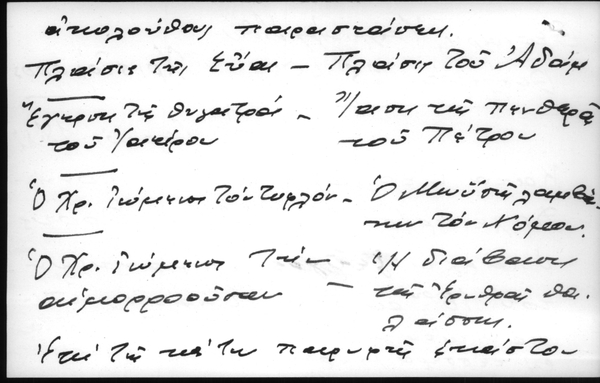 ἀκολούθους παραστάσεις.
Πλάσις τῆς Εὔας – Πλάσις τοῦ Ἀδάμ
Ἔγερσις τῆς θυγατρός – Ἴασις τῆς πενθερᾶς
τοῦ Ἰαείρου τοῦ Πέτρου
Ὁ Χρ. ἰώμενος τὸν τυφλόν – Ὁ Μωϋσῆς λαμβά-
νων τὸν Νόμον.
Ὁ Χρ. ἰώμενος τὴν – Ἡ διάβασις
αἱμορροοῦσαν τῆς Ἐρυθρᾶς θα-
λάσσης.
Ἐπὶ τῆς κάτω παρυφῆς ἑκάστου